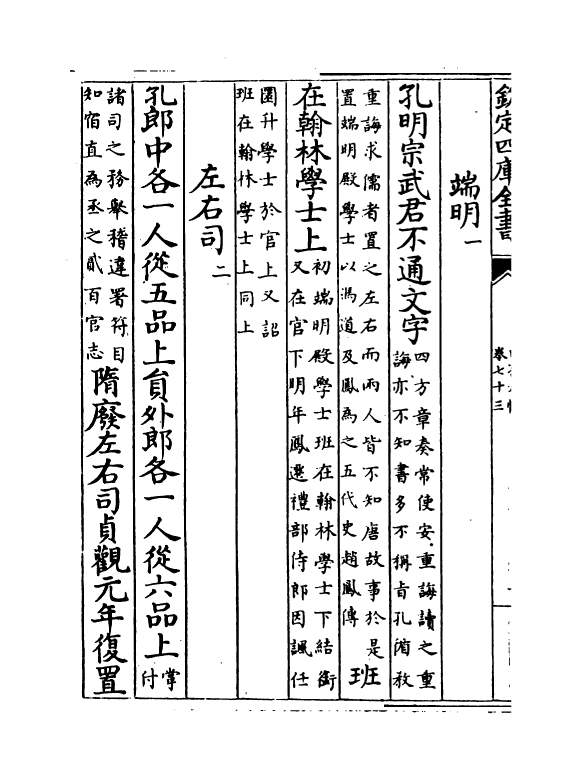 欽定四庫全書
卷七十三
端明一
孔明宗武君不通文字
四方章奏常使安重誨讀之重
誨亦不知書多不稱旨孔循教
重誨求儒者置之左右而兩人皆不知唐故事於是
置端明殿學士以馮道及鳳為之五代史趙鳳傳
班
在翰林學士上
初端明殿學士班在翰林學士下結銜
又在官下明年鳳遷禮部侍郎因諷任
圜升學士於官上又詔
班在翰林學士上同上
左右司二
孔郎中各一人從五品上貟外郎各一人從六品上
掌
付
諸司之務舉稽違署符目
知宿直為丞之貳百官志
隋廢左右司貞觀元年復置